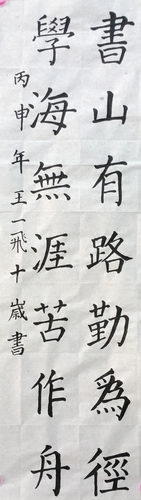 書山有路勤為徑
學海無涯苦作舟
丙申年王一飛十歲書